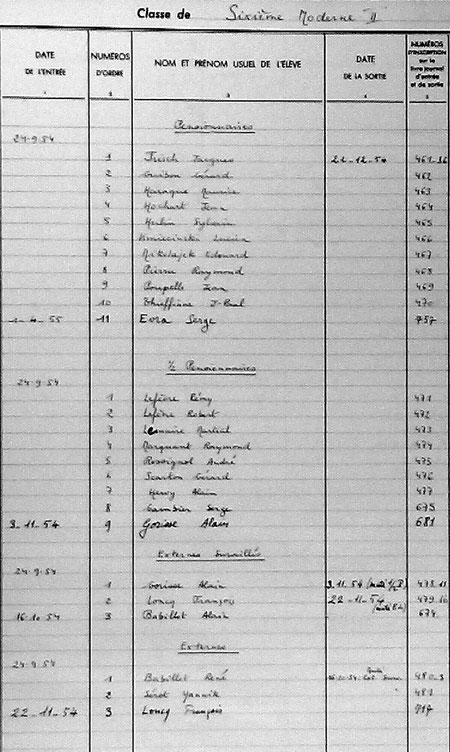 Classe de Sixième Moderne II
DATE DE L'ENTRÉE NUMÉROS D'ORDRE NOM ET PRÉNOM USUEL DE L'ÉLÈVE DATE DE LA SORTIE NUMÉROS D'INSCRIPTION sur le livre journal d'entrée et de sortie
1 2 3 4 5
Pensionnaires
24-9-54
1 Fresch Jacques 22-12-54 461-36
2 Gérard 462
3 Maurice 463
4 Hochart Jean 464
5 Merlin Sylvain 465
6 Lucien 466
7 Mikolajek Edouard 467
8 Pierre Raymond 468
9 Poupelle Jean 469
10 J-Paul 470
1-4-55 11 Eora Serge 757
½ Pensionnaires
24-9-54
1 Lefèvre Rémy 471
2 Lefèvre Robert 472
3 Lemaire Martial 473
4 Marquant Raymond 474
5 Rossignol André 475
6 Scarton Gérard 476
7 Henry Alain 477
8 Cambier Serge 675
3-11-54 9 Gorisse Alain 681
Externes Surveillés
24-9-54
1 Gorisse Alain 3.11.54 478-11
2 Loncq François 22-11-54 479-16
16-10-54 3 Babillot Alain 674
Externes
24-9-54
1 Babillot René 480-3
2 Sérot Yannik 481
22-11-54 3 Loncq François 717